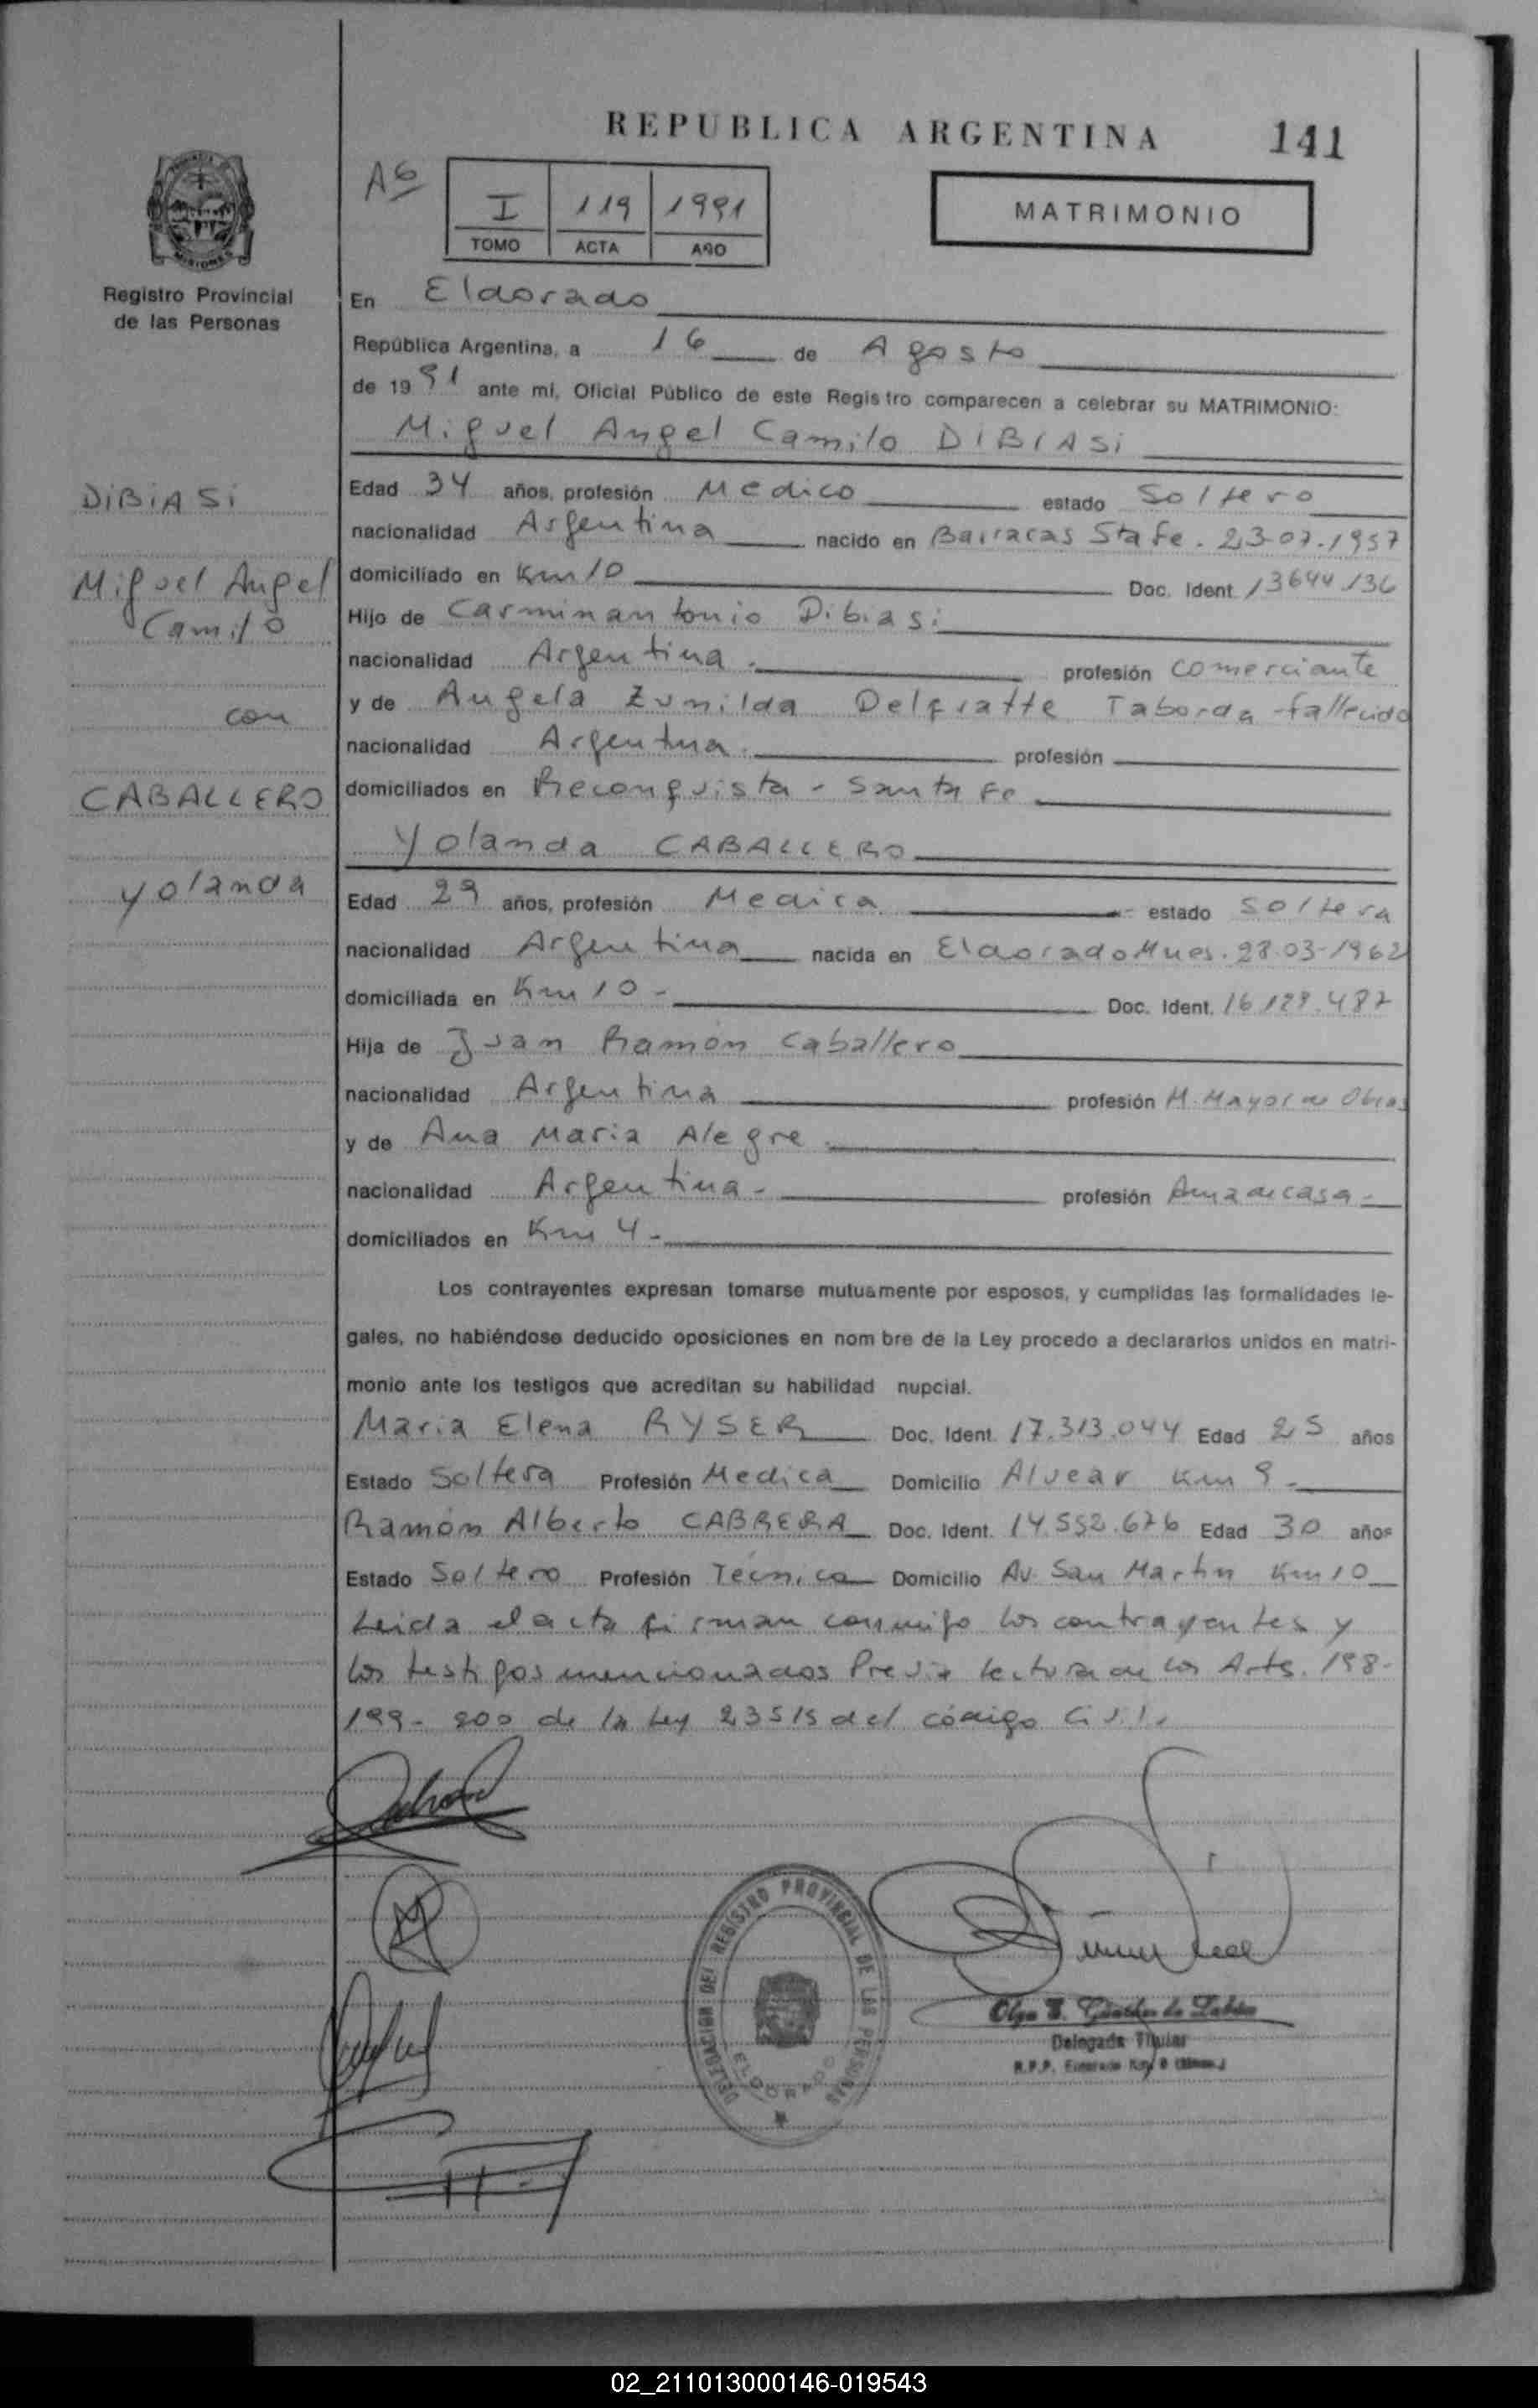 REPUBLICA ARGENTINA 141
MATRIMONIO
I 119 1991
TOMO ACTA AÑO
MISIONES
Registro Provincial
de las Personas
En Eldorado
República Argentina, a 16 de Agosto
de 1991 ante mi, Oficial Público de este Registro comparecen a celebrar su MATRIMONIO:
Miguel Angel Camilo DIBIASi
DiBiASi
Miguel Angel
Camilo
con
CABALLERO
Yolanda
Edad 34 años, profesión Medico estado Soltero
nacionalidad Argentina nacido en Barracas Sta Fe. 23-07-1957
domiciliado en Km 10 Doc. Ident. 13644136
Hijo de Carminantonio Dibiasi
nacionalidad Argentina. profesión comerciante
y de Angela Zunilda Delfratte Taborda fallecido
nacionalidad Argentina. profesión
domiciliados en Reconquista - Santa Fe
Yolanda CABALLERO
Edad 29 años, profesión Medica estado Soltera
nacionalidad Argentina nacida en Eldorado Mnes. 28.03-1962
domiciliada en Km 10 - Doc. Ident. 16.128.487
Hija de Juan Ramón Caballero
nacionalidad Argentina profesión M. Mayor de Obras
y de Ana Maria Alegre.
nacionalidad Argentina - profesión Ama de casa -
domiciliados en Km 4 -
Los contrayentes expresan tomarse mutuamente por esposos, y cumplidas las formalidades le-
gales, no habiéndose deducido oposiciones en nom bre de la Ley procedo a declararlos unidos en matri-
monio ante los testigos que acreditan su habilidad nupcial.
Maria Elena RYSER Doc. Ident. 17.313.044 Edad 25 años
Estado Soltera Profesión Medica Domicilio Alvear Km 9 -
Ramón Alberto CABRERA Doc. Ident. 14.552.676 Edad 30 años
Estado Soltero Profesión Técnica Domicilio Av. San Martin Km 10
Leida el acta firman conmigo los contrayentes y
los testigos mencionados Previa lectura de los Arts. 198-
199- 200 de la Ley 23515 del código Civil.
DELEGACION DEL REGISTRO PROVINCIAL DE LAS PERSONAS
ELDORADO
Delegada Titular
02_211013000146-019543